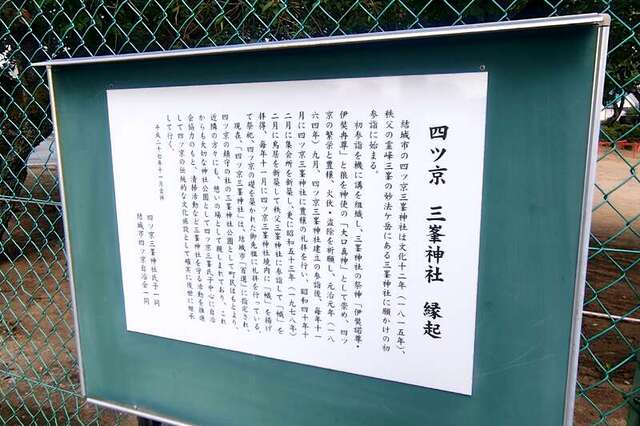 四ツ京 三峯神社 縁起
結城市の四ツ京三峯神社は文化十二年（一八一五年）、
秩父の霊峰三峯の妙法ケ岳にある三峯神社に願かけの初
参詣に始まる。
初参詣を機に講を組織し、三峯神社の祭神「伊奘諾尊・
伊奘冉尊」と狼を神使の「大口真神」として崇め、四ツ
京の繁栄と豊穰、火伏・盗除を祈願し、元治元年（一八
六四年）九月、四ツ京三峯神社建立の参詣後、毎年十一
月に四ツ京三峯神社に豊穰の礼拝を行い、昭和四十年十
二月に集会所を新築し、更に昭和五十三年（一九七八年）
二月に鳥居を新築して秩父三峯神社に参詣して「幟」を
拝得、毎年十一月に四ツ京三峯神社境内に「幟」を揚げ
て祭祀、四ツ京の礎を築かれた御先祖に礼拝を行っている。
現在、「四ツ京三峯神社」は、結城市「百選」に指定され、
四ツ京の鎮守の社の三峯神社公園として町民はもとより、
近隣の方々にも、憩いの場として親しまれており、これ
からも大切な神社公園として四ツ京三峯氏子中並びに自治
会協力のもと、清掃活動など三峯神社を守る活動を推進
して四ツ京の伝統的な文化施設として確実に後世に継承
して行く。
平成二十七年十一月吉祥
四ツ京三峯神社氏子一同
結城市四ツ京自治会一同